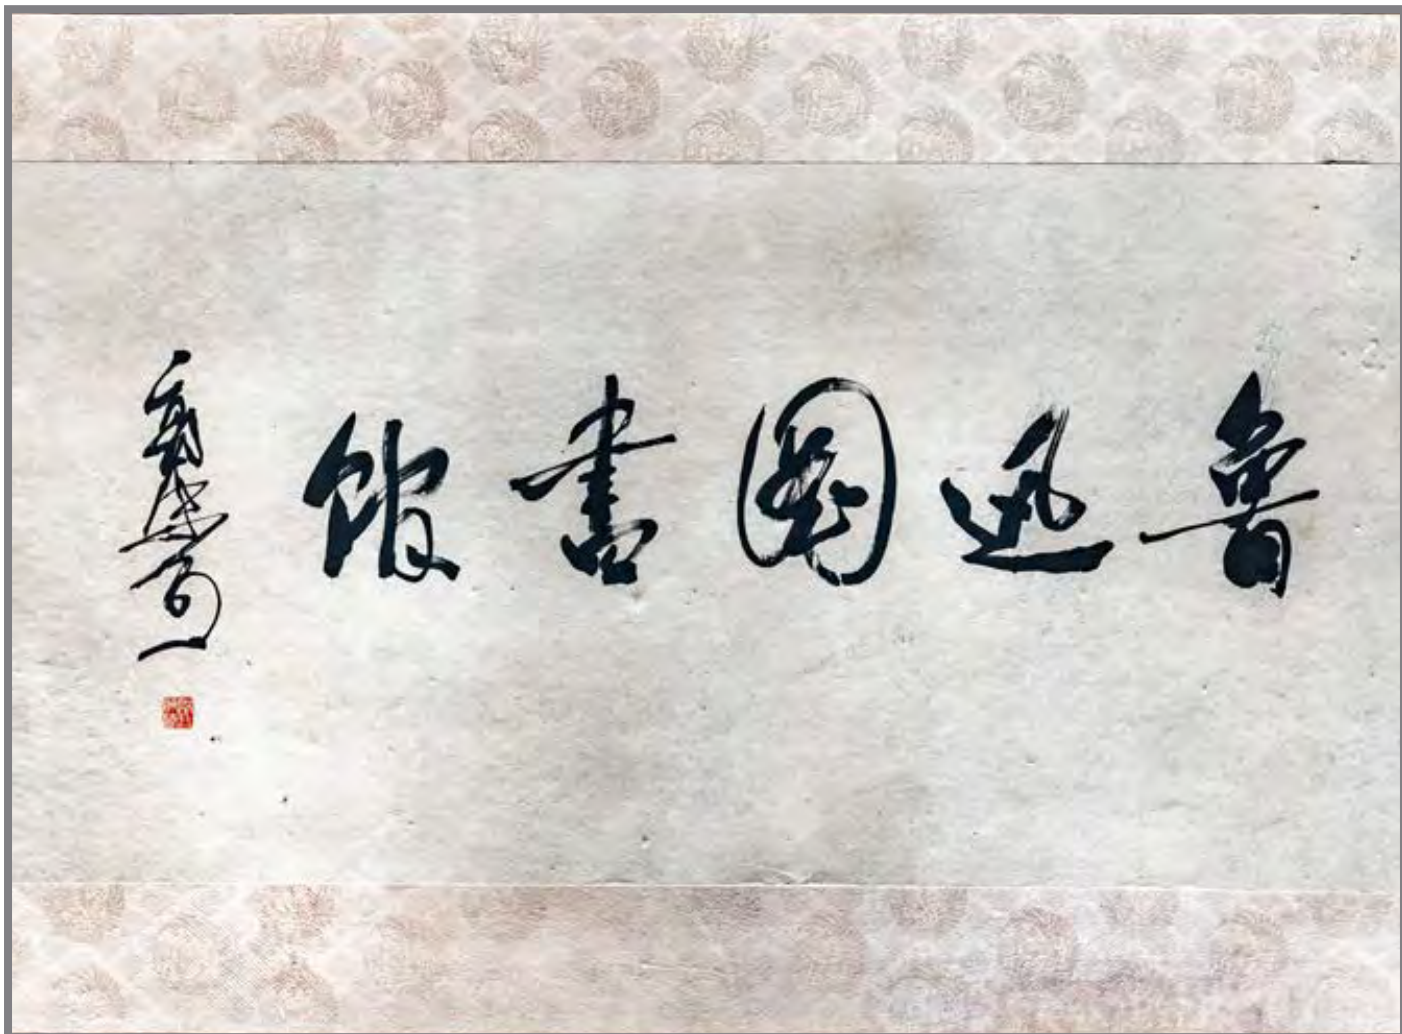 魯迅圖書館